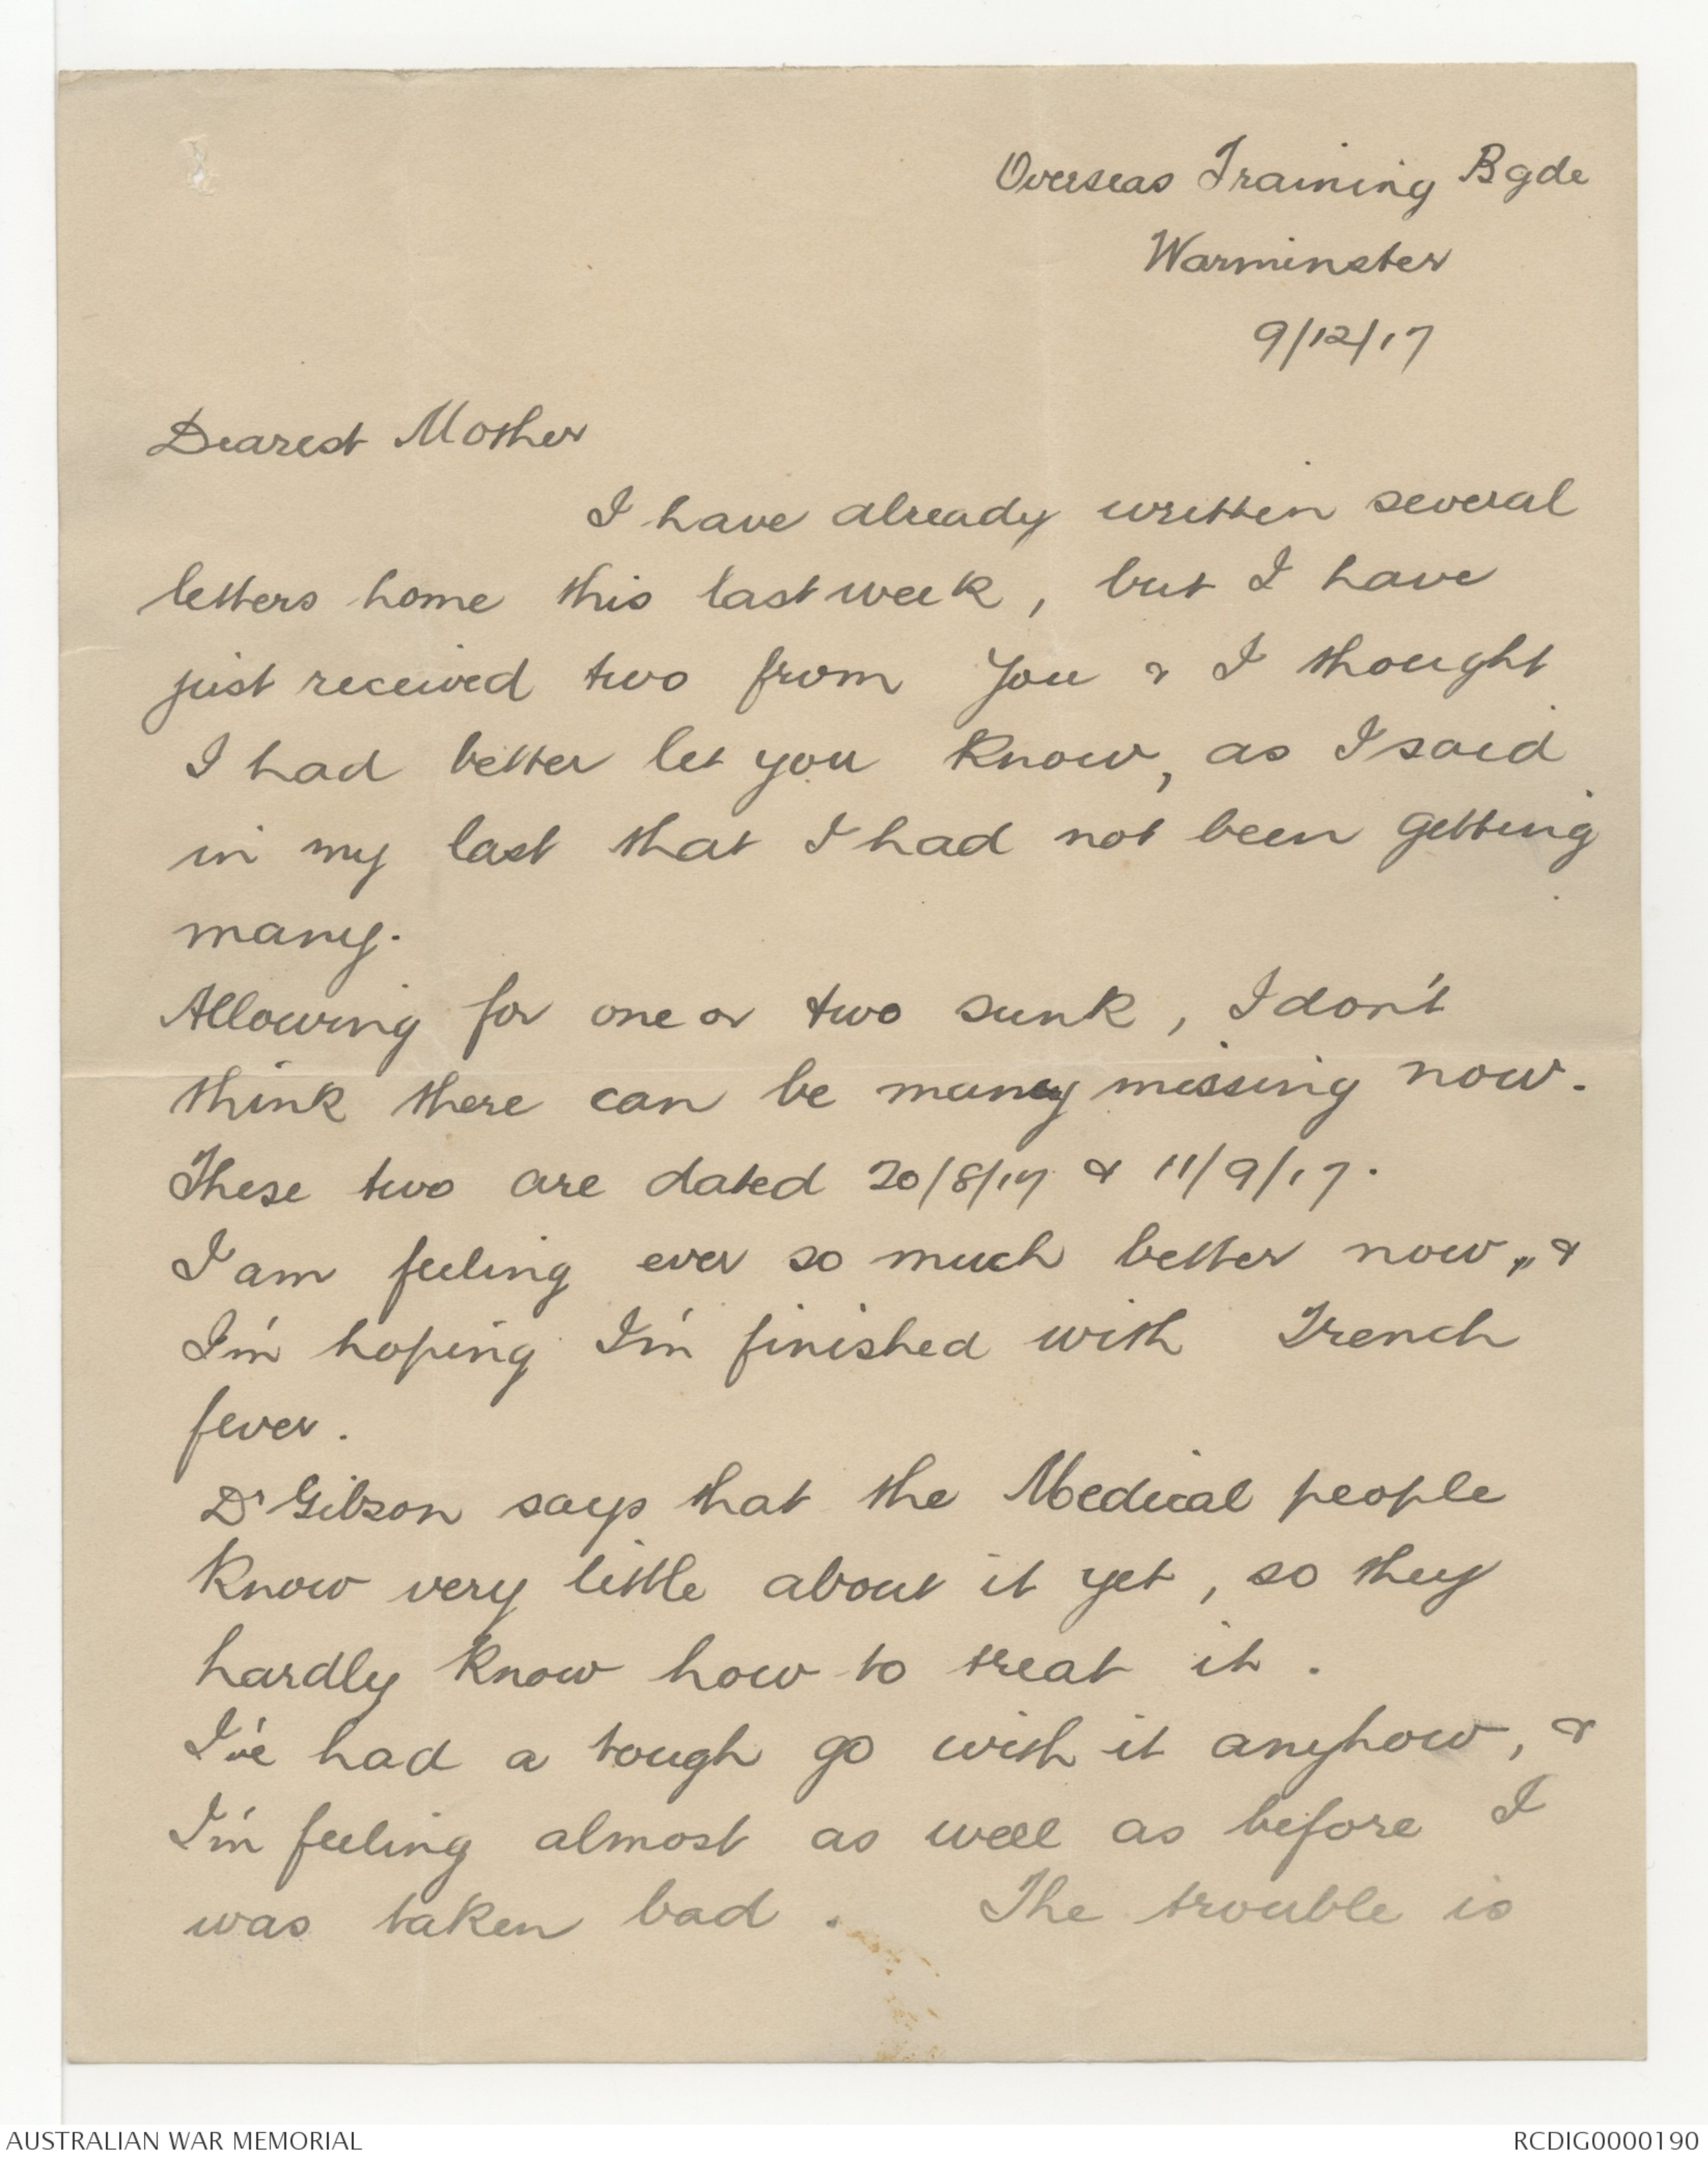 Overseas Training Bgde
Warminster
9/12/17
Dearest Mother
I have already written several
letters home this last week, but I have
just received two from you & I thought
I had better let you know, as I said
in my last that I had not been getting
many.
Allowing for one or two sunk, I don't
think there can be many missing now.
These two are dated 20/8/17 & 11/9/17.
I am feeling ever so much better now, &
I'm hoping I'm finished with Trench
fever.
Dr Gibson says that the Medical people
know very little about it yet, so they
hardly know how to treat it.
I've had a tough go with it anyhow, &
I'm feeling almost as well as before I
was taken bad. The trouble is
AUSTRALIAN WAR MEMORIAL
RCDIG0000190